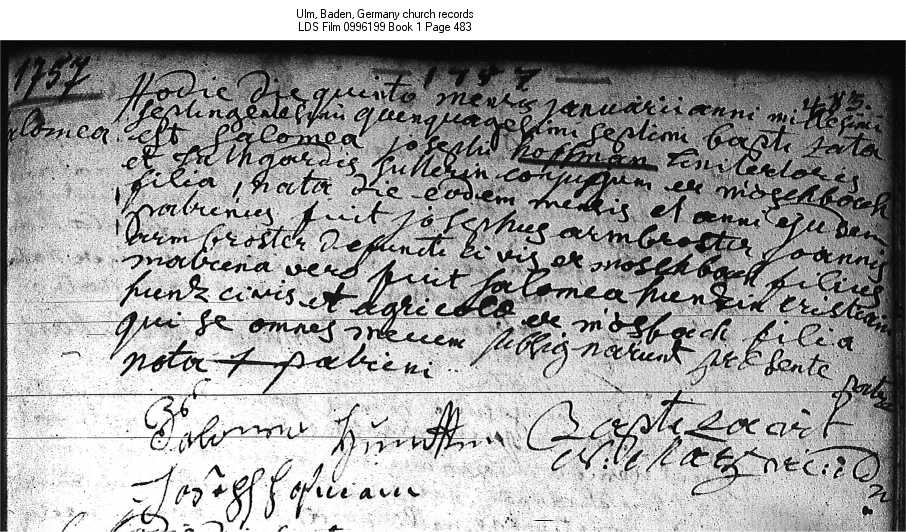 Ulm, Baden, Germany church records
LDS Film 0996199 Book 1 Page 483
1757
1757
483
Hodie die quinto mensis januarii anni millesimi
alomea
septingentesimi quenquagesimi septimi baptizata
est Salomea josephi hoffman
et Luthgardis Sutterin conjugum ex moschbach
filia, nata die eodem mensis et anni ejusdem
patrinus fuit josephus armbroster joannis
armbroster defuncti civis ex moschbach filius
matrina vero fuit Salomea hunzin cristiani
hunz civis et agricolae ex mosbach filia
qui se omnes mecum subsignarunt presente patre
nota + patrini
Salome
Baptizavit
Joseph hofmann